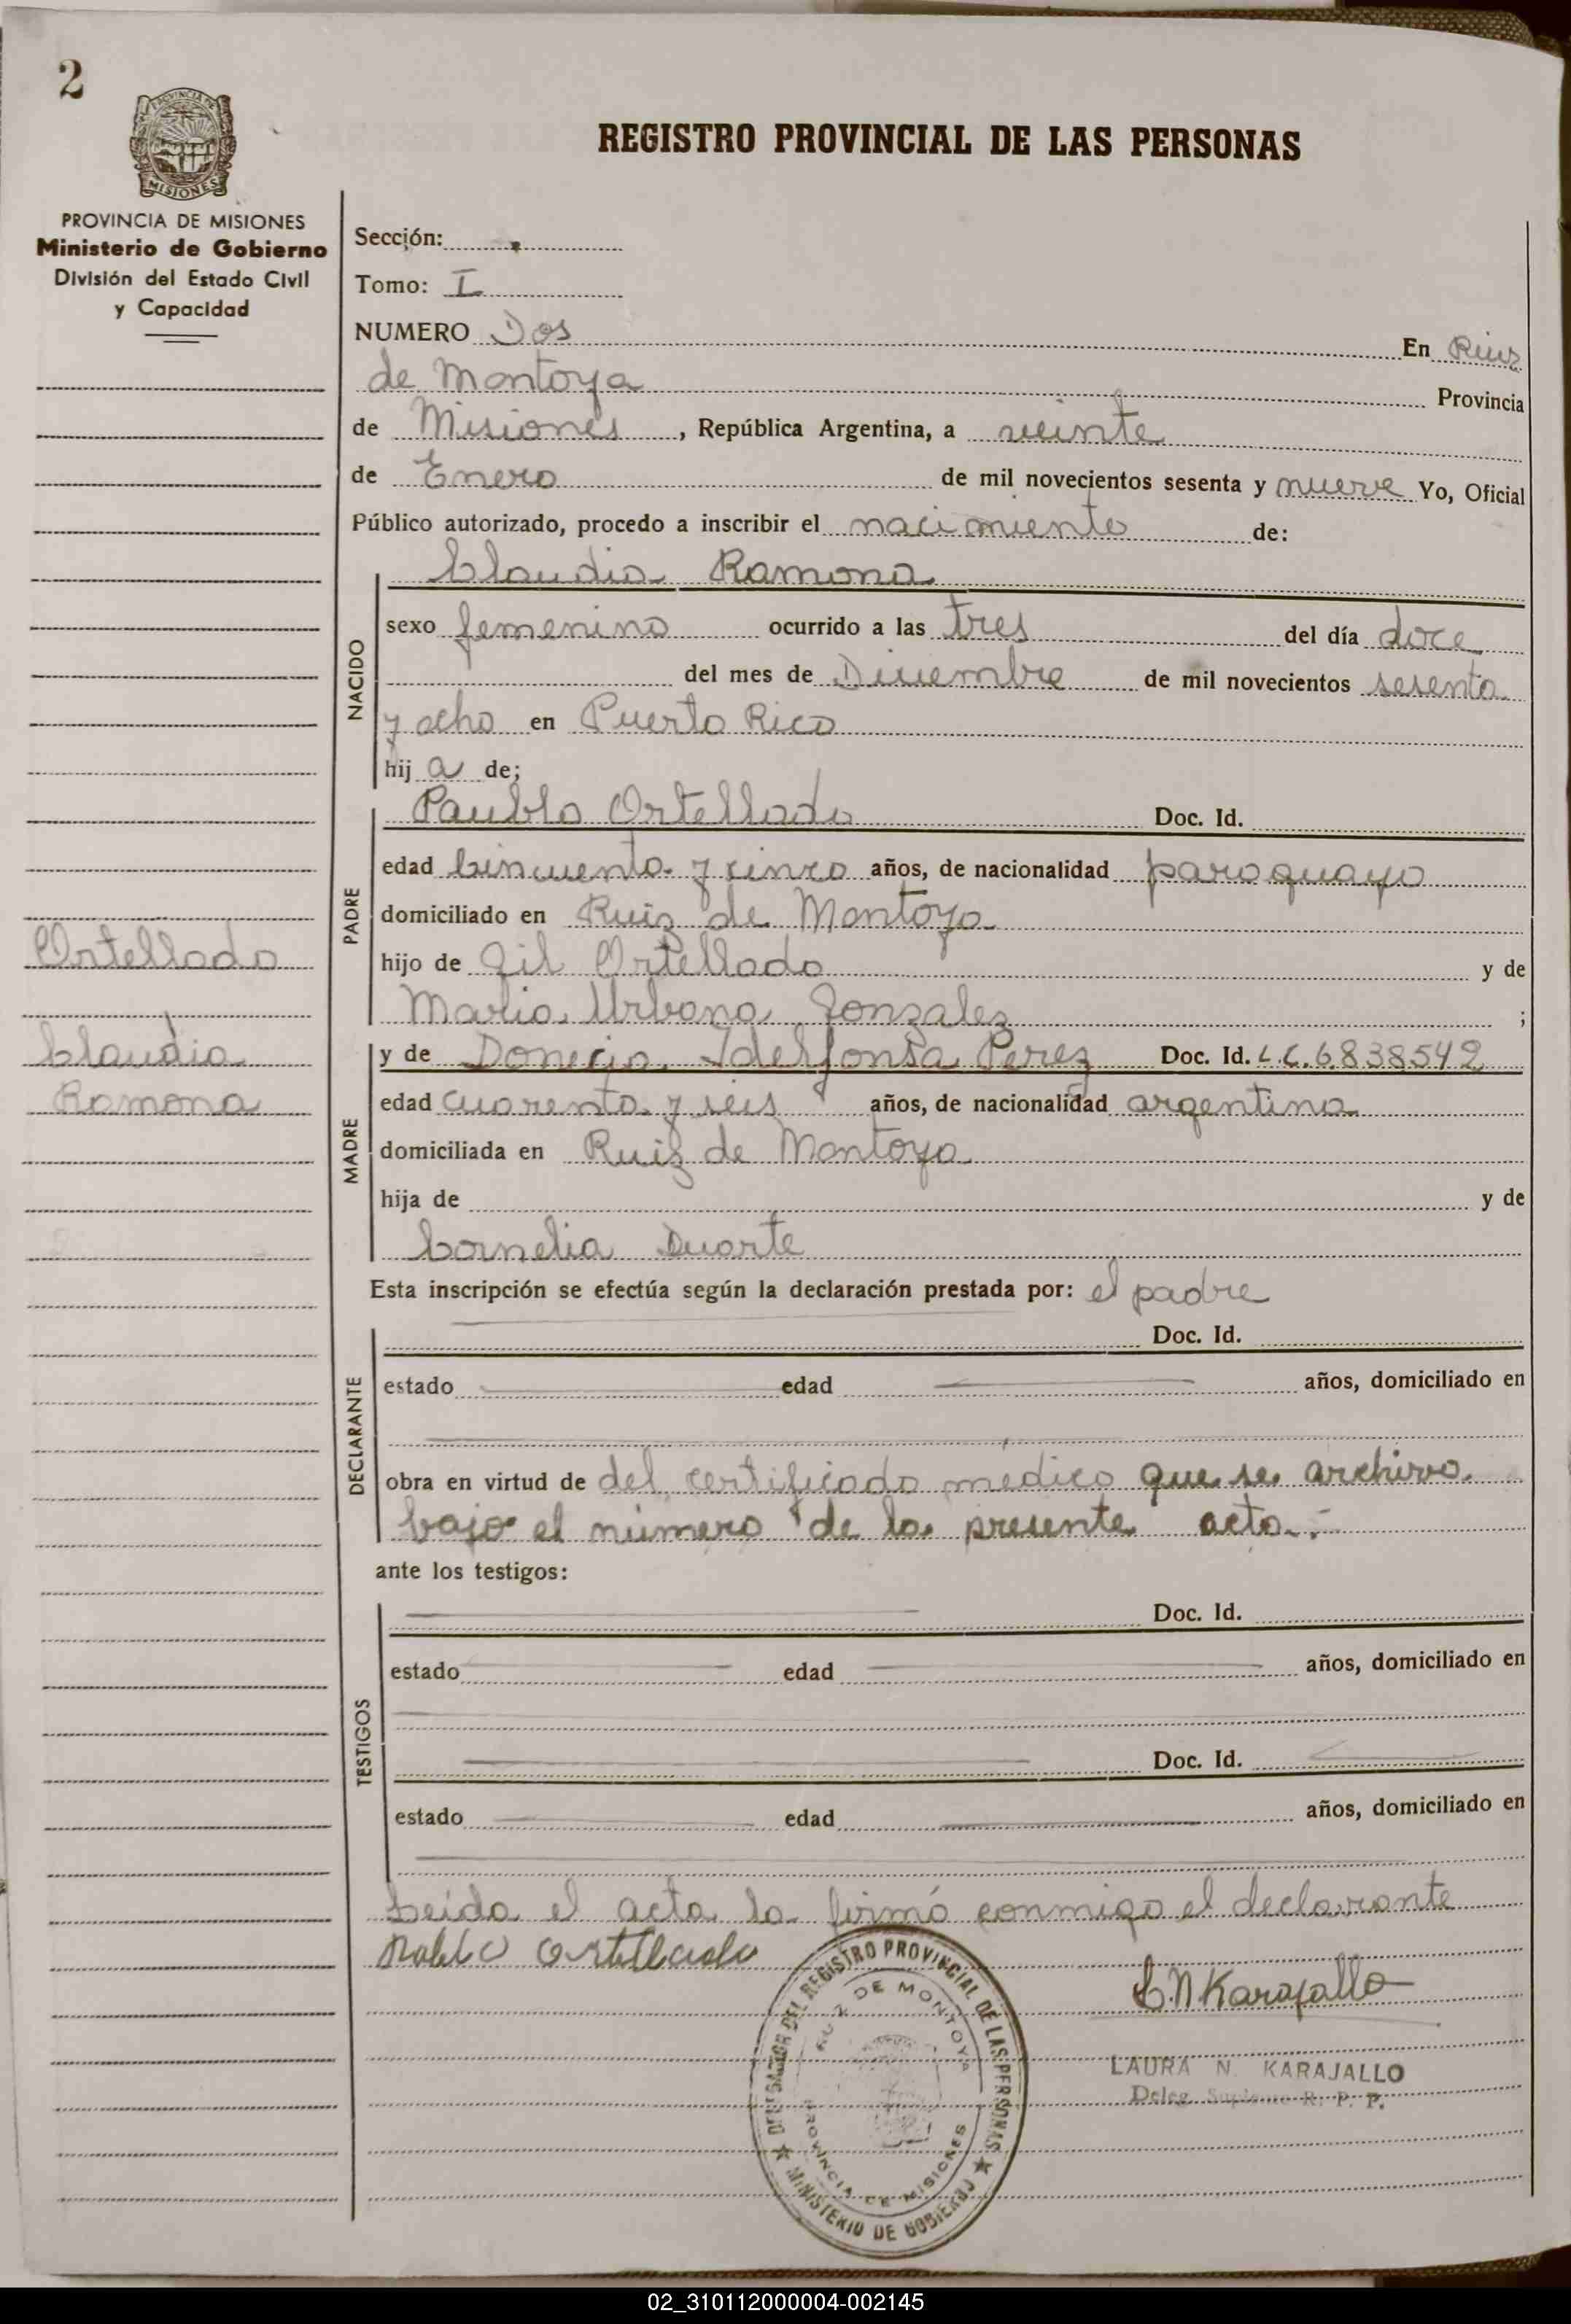 2
PROVINCIA DE
MISIONES
PROVINCIA DE MISIONES
Ministerio de Gobierno
División del Estado Civil
y Capacidad
Ortellado
Claudia
Ramona
REGISTRO PROVINCIAL DE LAS PERSONAS
Sección:
Tomo: I
NUMERO Dos En Ruiz
de Montoya Provincia
de Misiones, República Argentina, a veinte
de Enero de mil novecientos sesenta y nueve Yo, Oficial
Público autorizado, procedo a inscribir el nacimiento de:
Claudia Ramona
NACIDO
sexo femenino ocurrido a las tres del día doce
del mes de Diciembre de mil novecientos sesenta
y ocho en Puerto Rico
hij a de;
PADRE
Paublo Ortellado Doc. Id.
edad Cincuenta y cinco años, de nacionalidad paraguayo
domiciliado en Ruiz de Montoya
hijo de Gil Ortellado y de
Maria Urbana Gonzalez ;
MADRE
y de Idelfonsa Perez Doc. Id. L.C. 6.838542
edad cuarenta y seis años, de nacionalidad argentina
domiciliada en Ruiz de Montoya
hija de y de
Cornelia Duarte
Esta inscripción se efectúa según la declaración prestada por: el padre
DECLARANTE
Doc. Id.
estado edad años, domiciliado en
obra en virtud de del certificado médico que se archiva
bajo el número de la presente acta.-
ante los testigos:
TESTIGOS
Doc. Id.
estado edad años, domiciliado en
Doc. Id.
estado edad años, domiciliado en
Leida el acta la firmó conmigo el declarante
Pablo Ortellado
L.N Karajallo
DELEGADOR DEL REGISTRO PROVINCIAL DE LAS PERSONAS
RUIZ DE MONTOYA
PROVINCIA DE MISIONES
MINISTERIO DE GOBIERNO
LAURA N. KARAJALLO
Deleg. Suplente R. P. P.
02_310112000004-002145